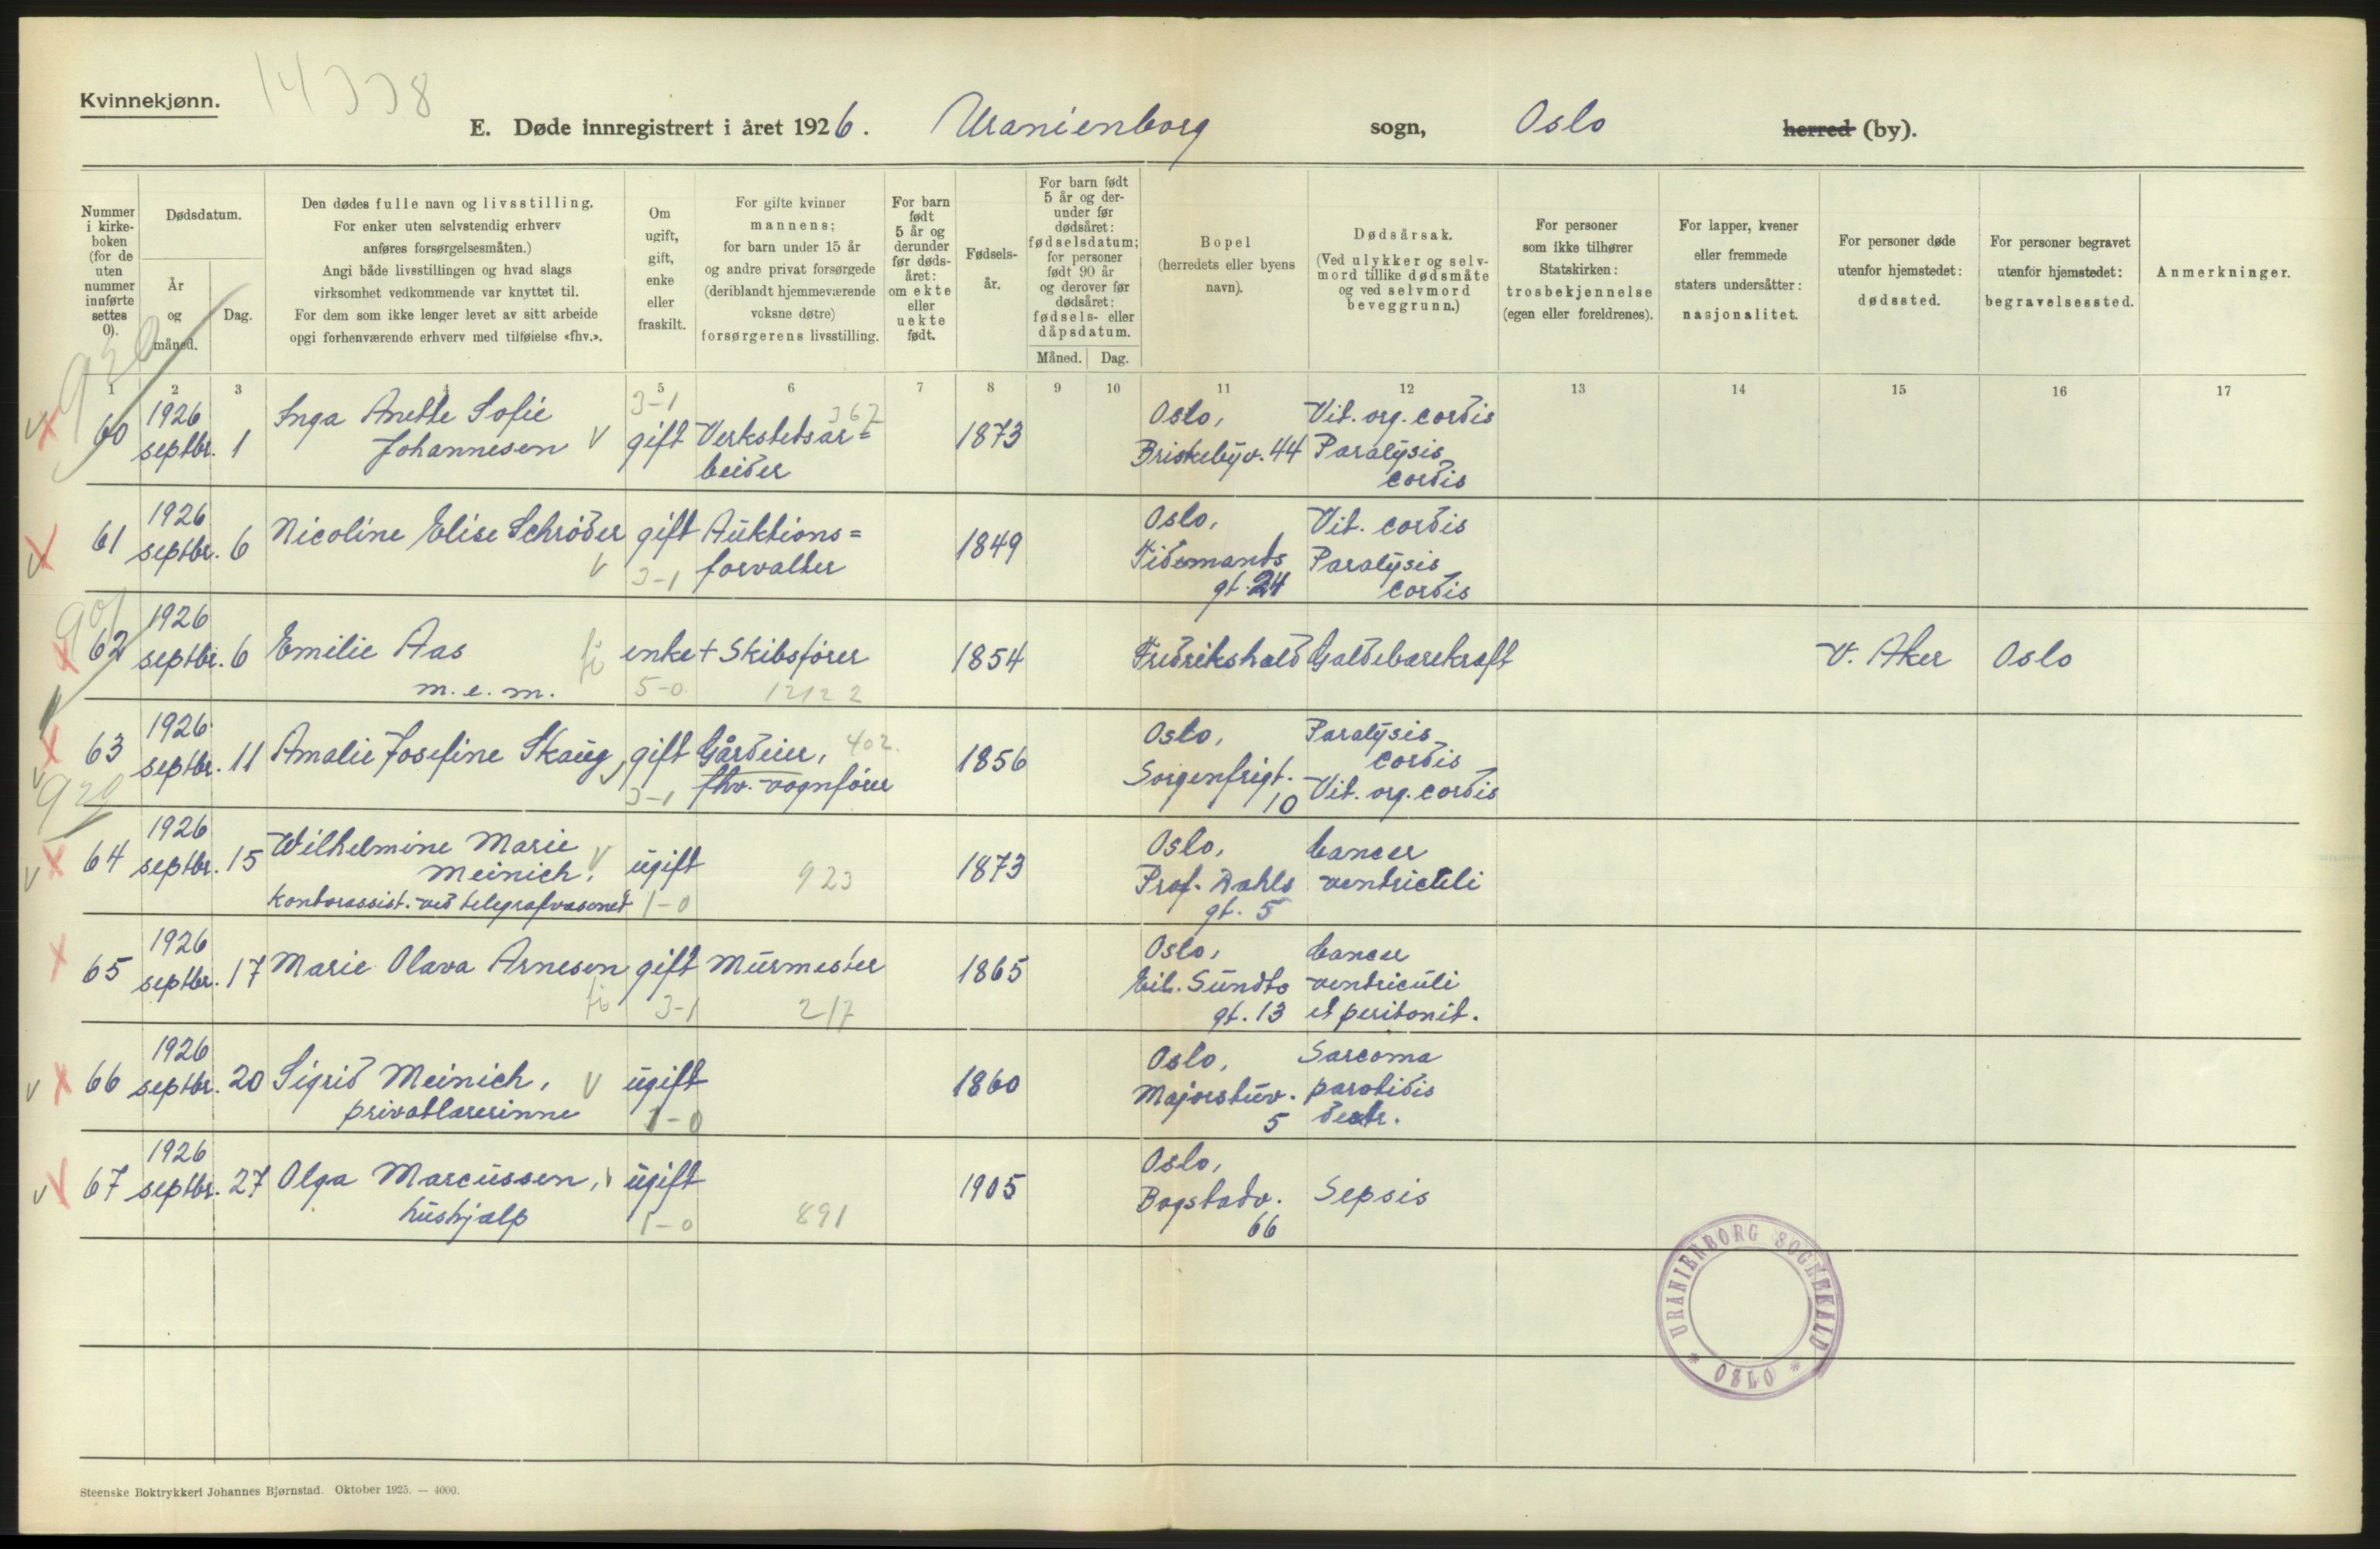 Kvinnekjønn.
14338
E. Døde innregistrert i året 1926. Uranienborg sogn, Oslo herred (by).
Nummer i kirke-boken (for de uten nummer innførte settes 0).
Dødsdatum.
År og måned.
Dag.
Den dødes fulle navn og livsstilling.
For enker uten selvstendig erhverv
anføres forsørgelsesmåten.)
Angi både livsstillingen og hvad slags
virksomhet vedkommende var knyttet til.
For dem som ikke lenger levet av sitt arbeide
opgi forhenværende erhverv med tilføielse «fhv.».
Om ugift, gift, enke eller fraskilt.
For gifte kvinner
mannens;
for barn under 15 år
og andre privat forsørgede
(deriblandt hjemmeværende
voksne døtre)
forsørgerens livsstilling.
For barn født 5 år og derunder før døds-året: om ekte eller uekte født.
Fødsels-år.
For barn født 5 år og der-under før dødsåret: fødselsdatum; for personer født 90 år og derover før dødsåret: fødsels- eller dåpsdatum.
Måned. Dag.
Bopel
(herredets eller byens
navn).
Dødsårsak.
(Ved ulykker og selv-
mord tillike dødsmåte
og ved selvmord
beveggrunn.)
For personer
som ikke tilhører
Statskirken:
trosbekjennelse
(egen eller foreldrenes).
For lapper, kvener
eller fremmede
staters undersåtter:
nasjonalitet.
For personer døde
utenfor hjemstedet:
dødssted.
For personer begravet
utenfor hjemstedet:
begravelsessted.
Anmerkninger.
1 2 3 4 5 6 7 8 9 10 11 12 13 14 15 16 17
1926 Inga Anette Sofie 3-1 367 Oslo, Vit. org. cordis
60 septbr. 1 Johannesen v gift Verkstedsar= 1873 Briskebyv. 44 Paralysis
beider cordis
1926 Oslo, Vit. cordis
61 septbr. 6 Nicoline Elise Schrøder gift Auktions= 1849 Tidemands Paralysis
v 3-1 forvalter gt. 24 cordis
901
1926
62 septbr. 6 Emilie Aas fi enke + Skibsfører 1854 Fredrikshald Galdeblærekræft V. Aker Oslo
m. e. m. 5-0 12122
1926 Oslo, Paralysis
63 septbr. 11 Amalie Josefine Skaug, gift Gårdeier, 402. 1856 Sorgenfrigt. cordis
929 3-1 fhv. vognfører 10 Vit. org. cordis
1926 Wilhelmine Marie Oslo, Cancer
64 septbr. 15 Meinich, v ugift 923 1873 Prof. Dahls ventriculi
Kontorassist. ved telegrafvæsenet 1-0 gt. 5
1926 Oslo, Cancer
65 septbr. 17 Marie Olava Arnesen gift Murmester 1865 Eil. Sundts ventriculi
fi 3-1 217 gt. 13 et peritonit.
1926 Oslo, Sarcoma
66 septbr. 20 Sigrid Meinich, v ugift 1860 Majorstuv. parotidis
privatlærerinne 1-0 5 dextr.
1926 Oslo,
67 septbr. 27 Olga Marcussen, v ugift 1905 Bogstadv. Sepsis
hushjælp 1-0 891 66
URANIENBORG SOGNEKALD
* OSLO *
Steenske Boktrykkeri Johannes Bjørnstad. Oktober 1925. — 4000.